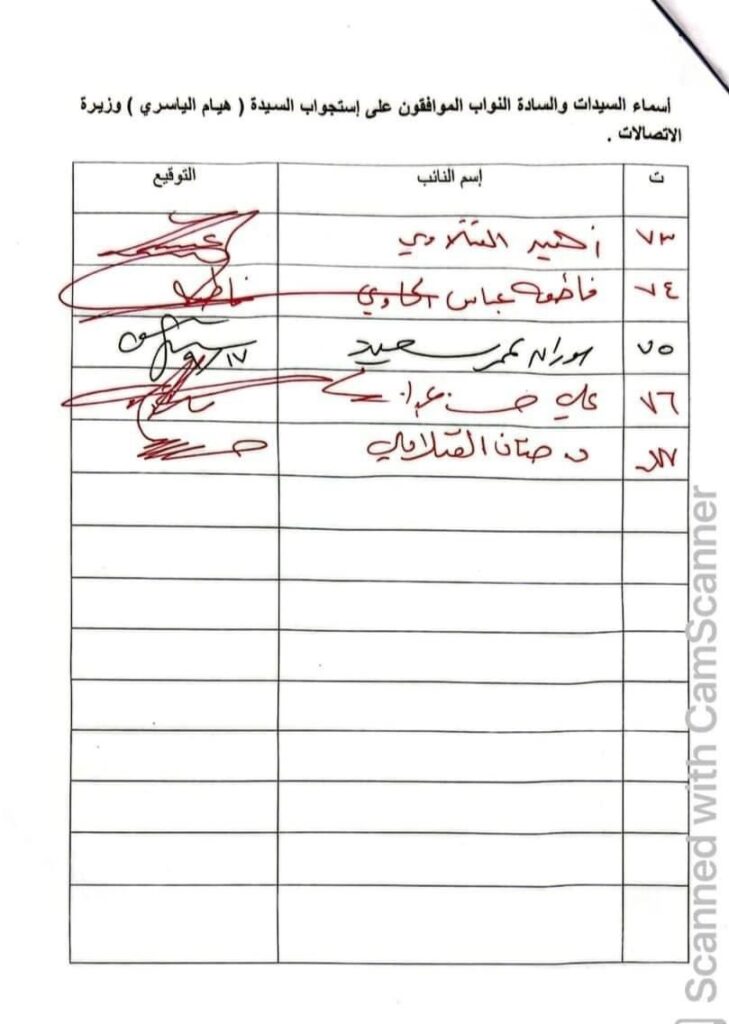 أسماء السيدات والسادة النواب الموافقون على إستجواب السيدة ( هيام الياسري ) وزيرة
الاتصالات .
ت إسم النائب التوقيع
٧٣ زهير الفتلاوي
٧٤ فاطمة عباس
٧٥ سوران عمر سعيد ٩/١٧
٧٦ علي
٧٧ د. حنان الفتلاوي
Scanned with CamScanner